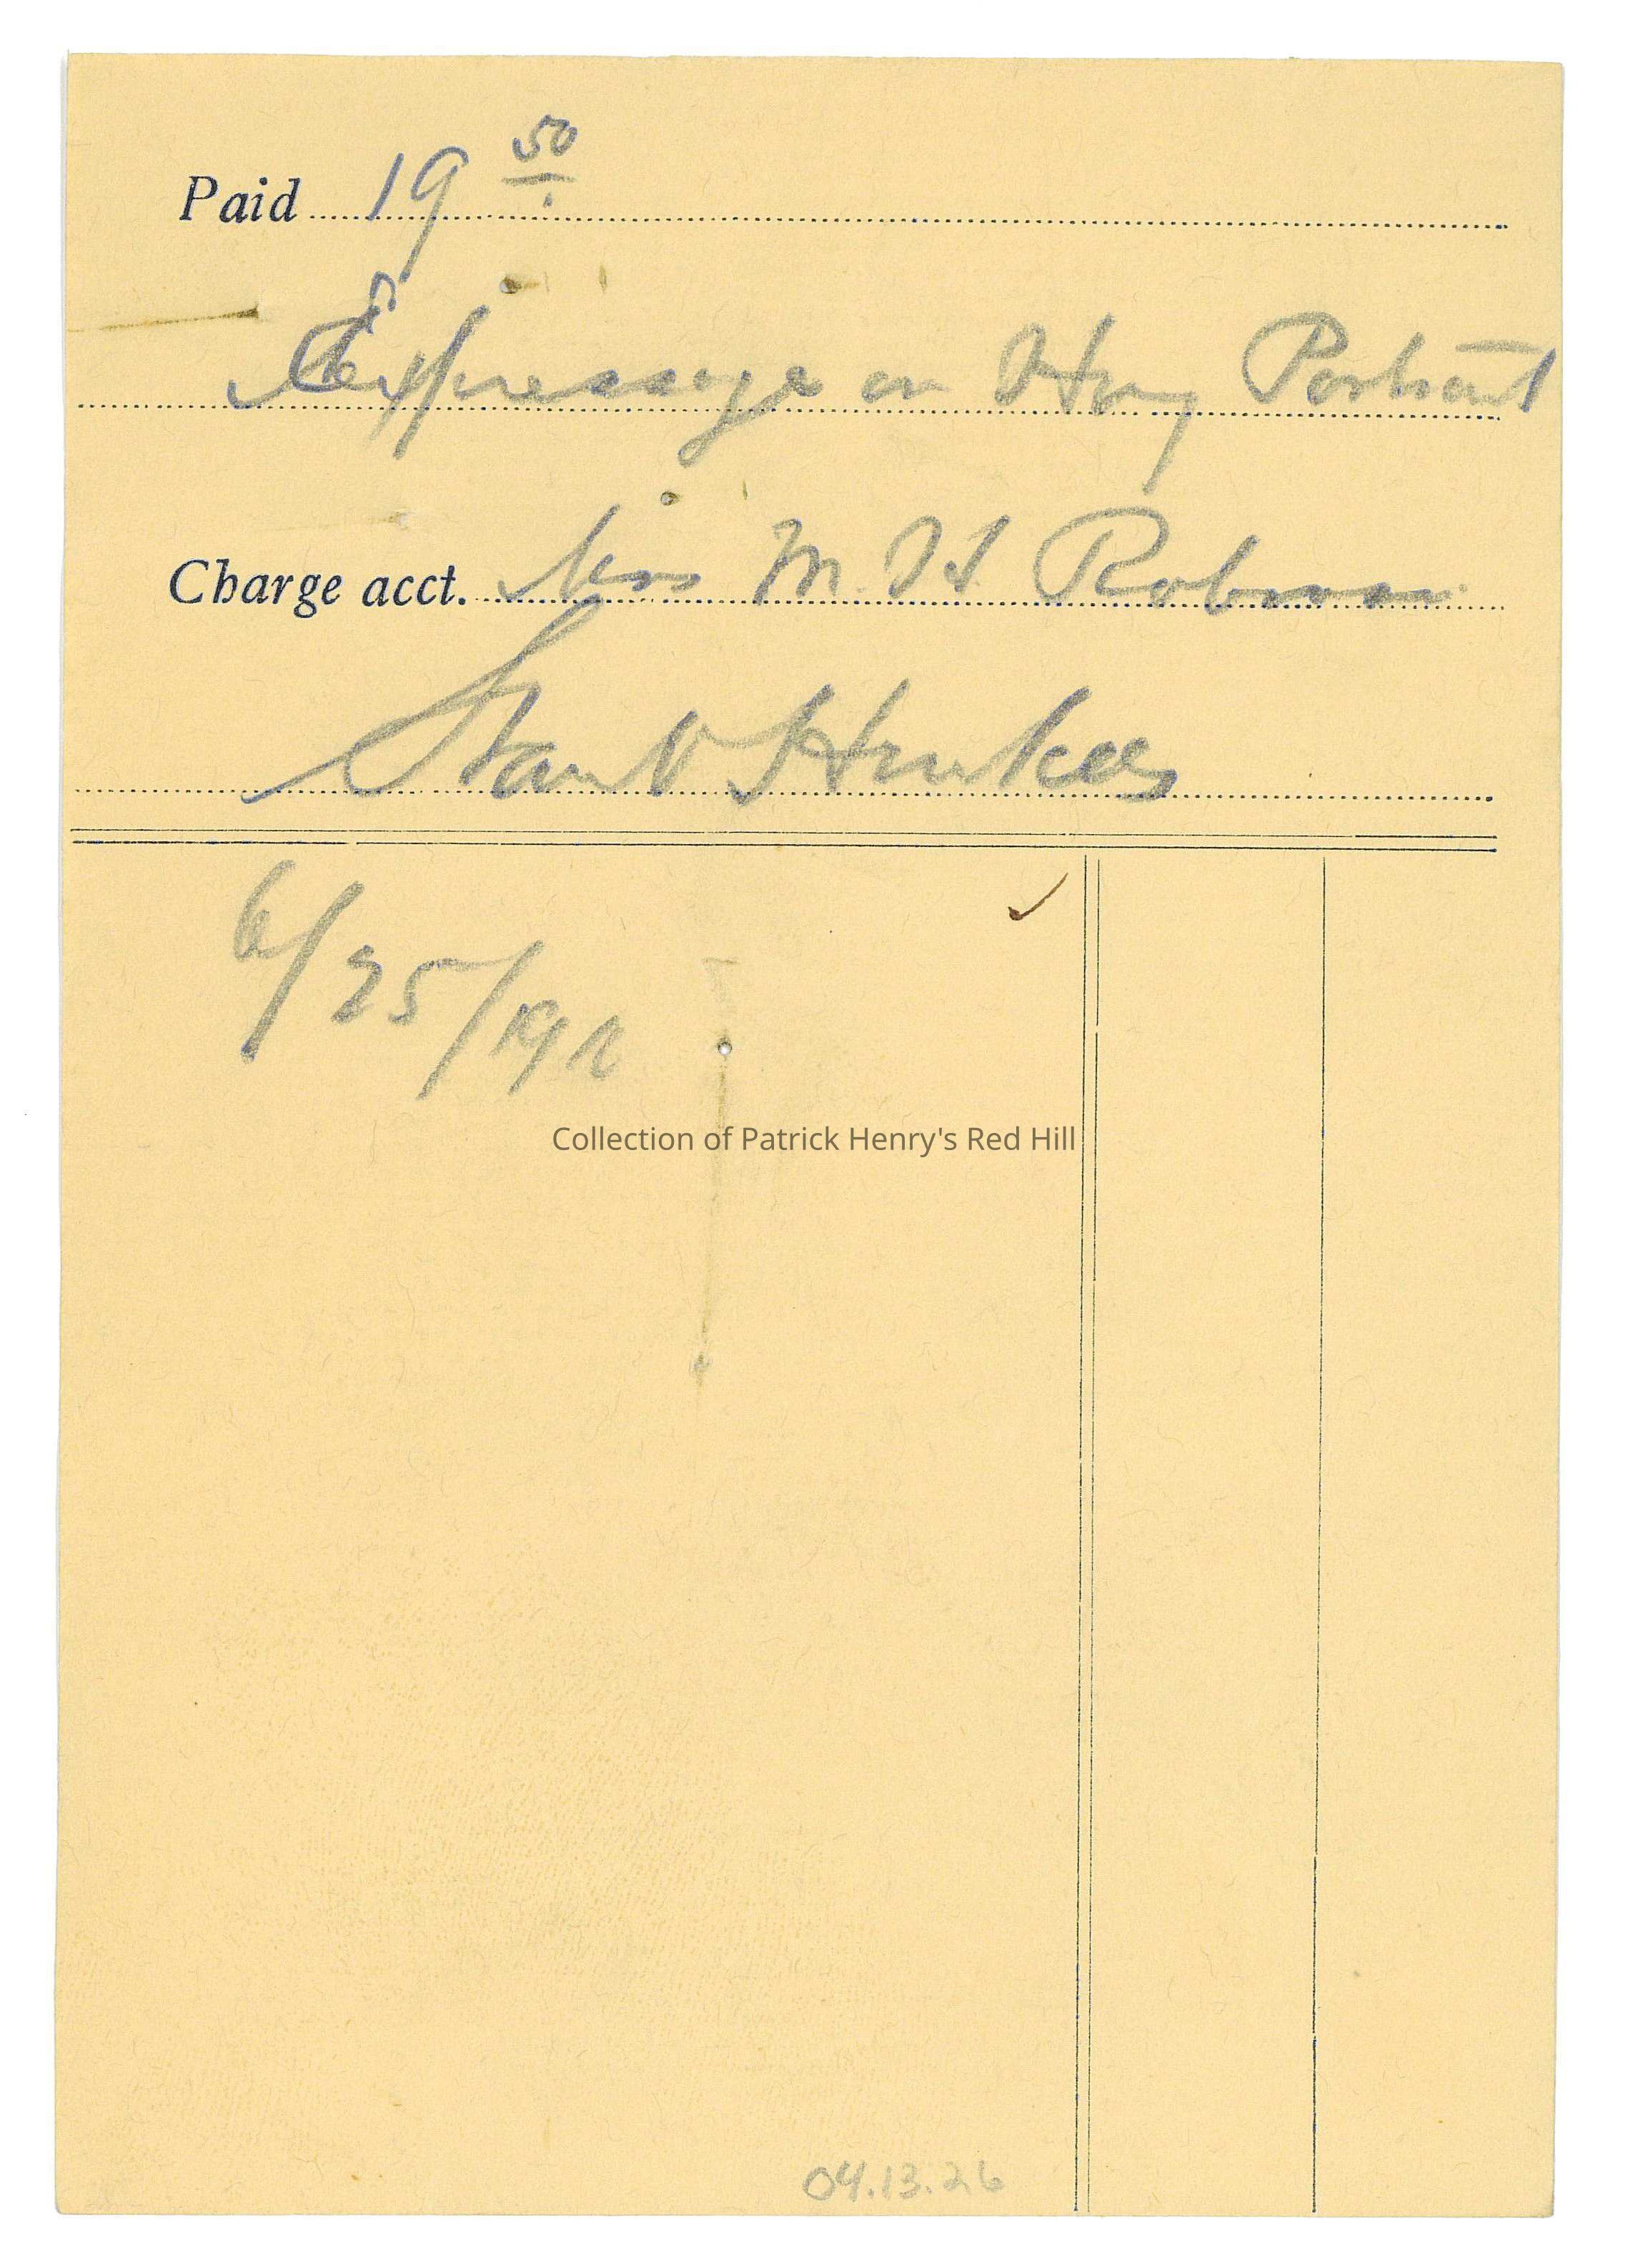 Paid 19 50
Expressage on Hny Portrait
Charge acct. Mrs M. H. Robinson
6/25/191
Collection of Patrick Henry's Red Hill
04.13.26